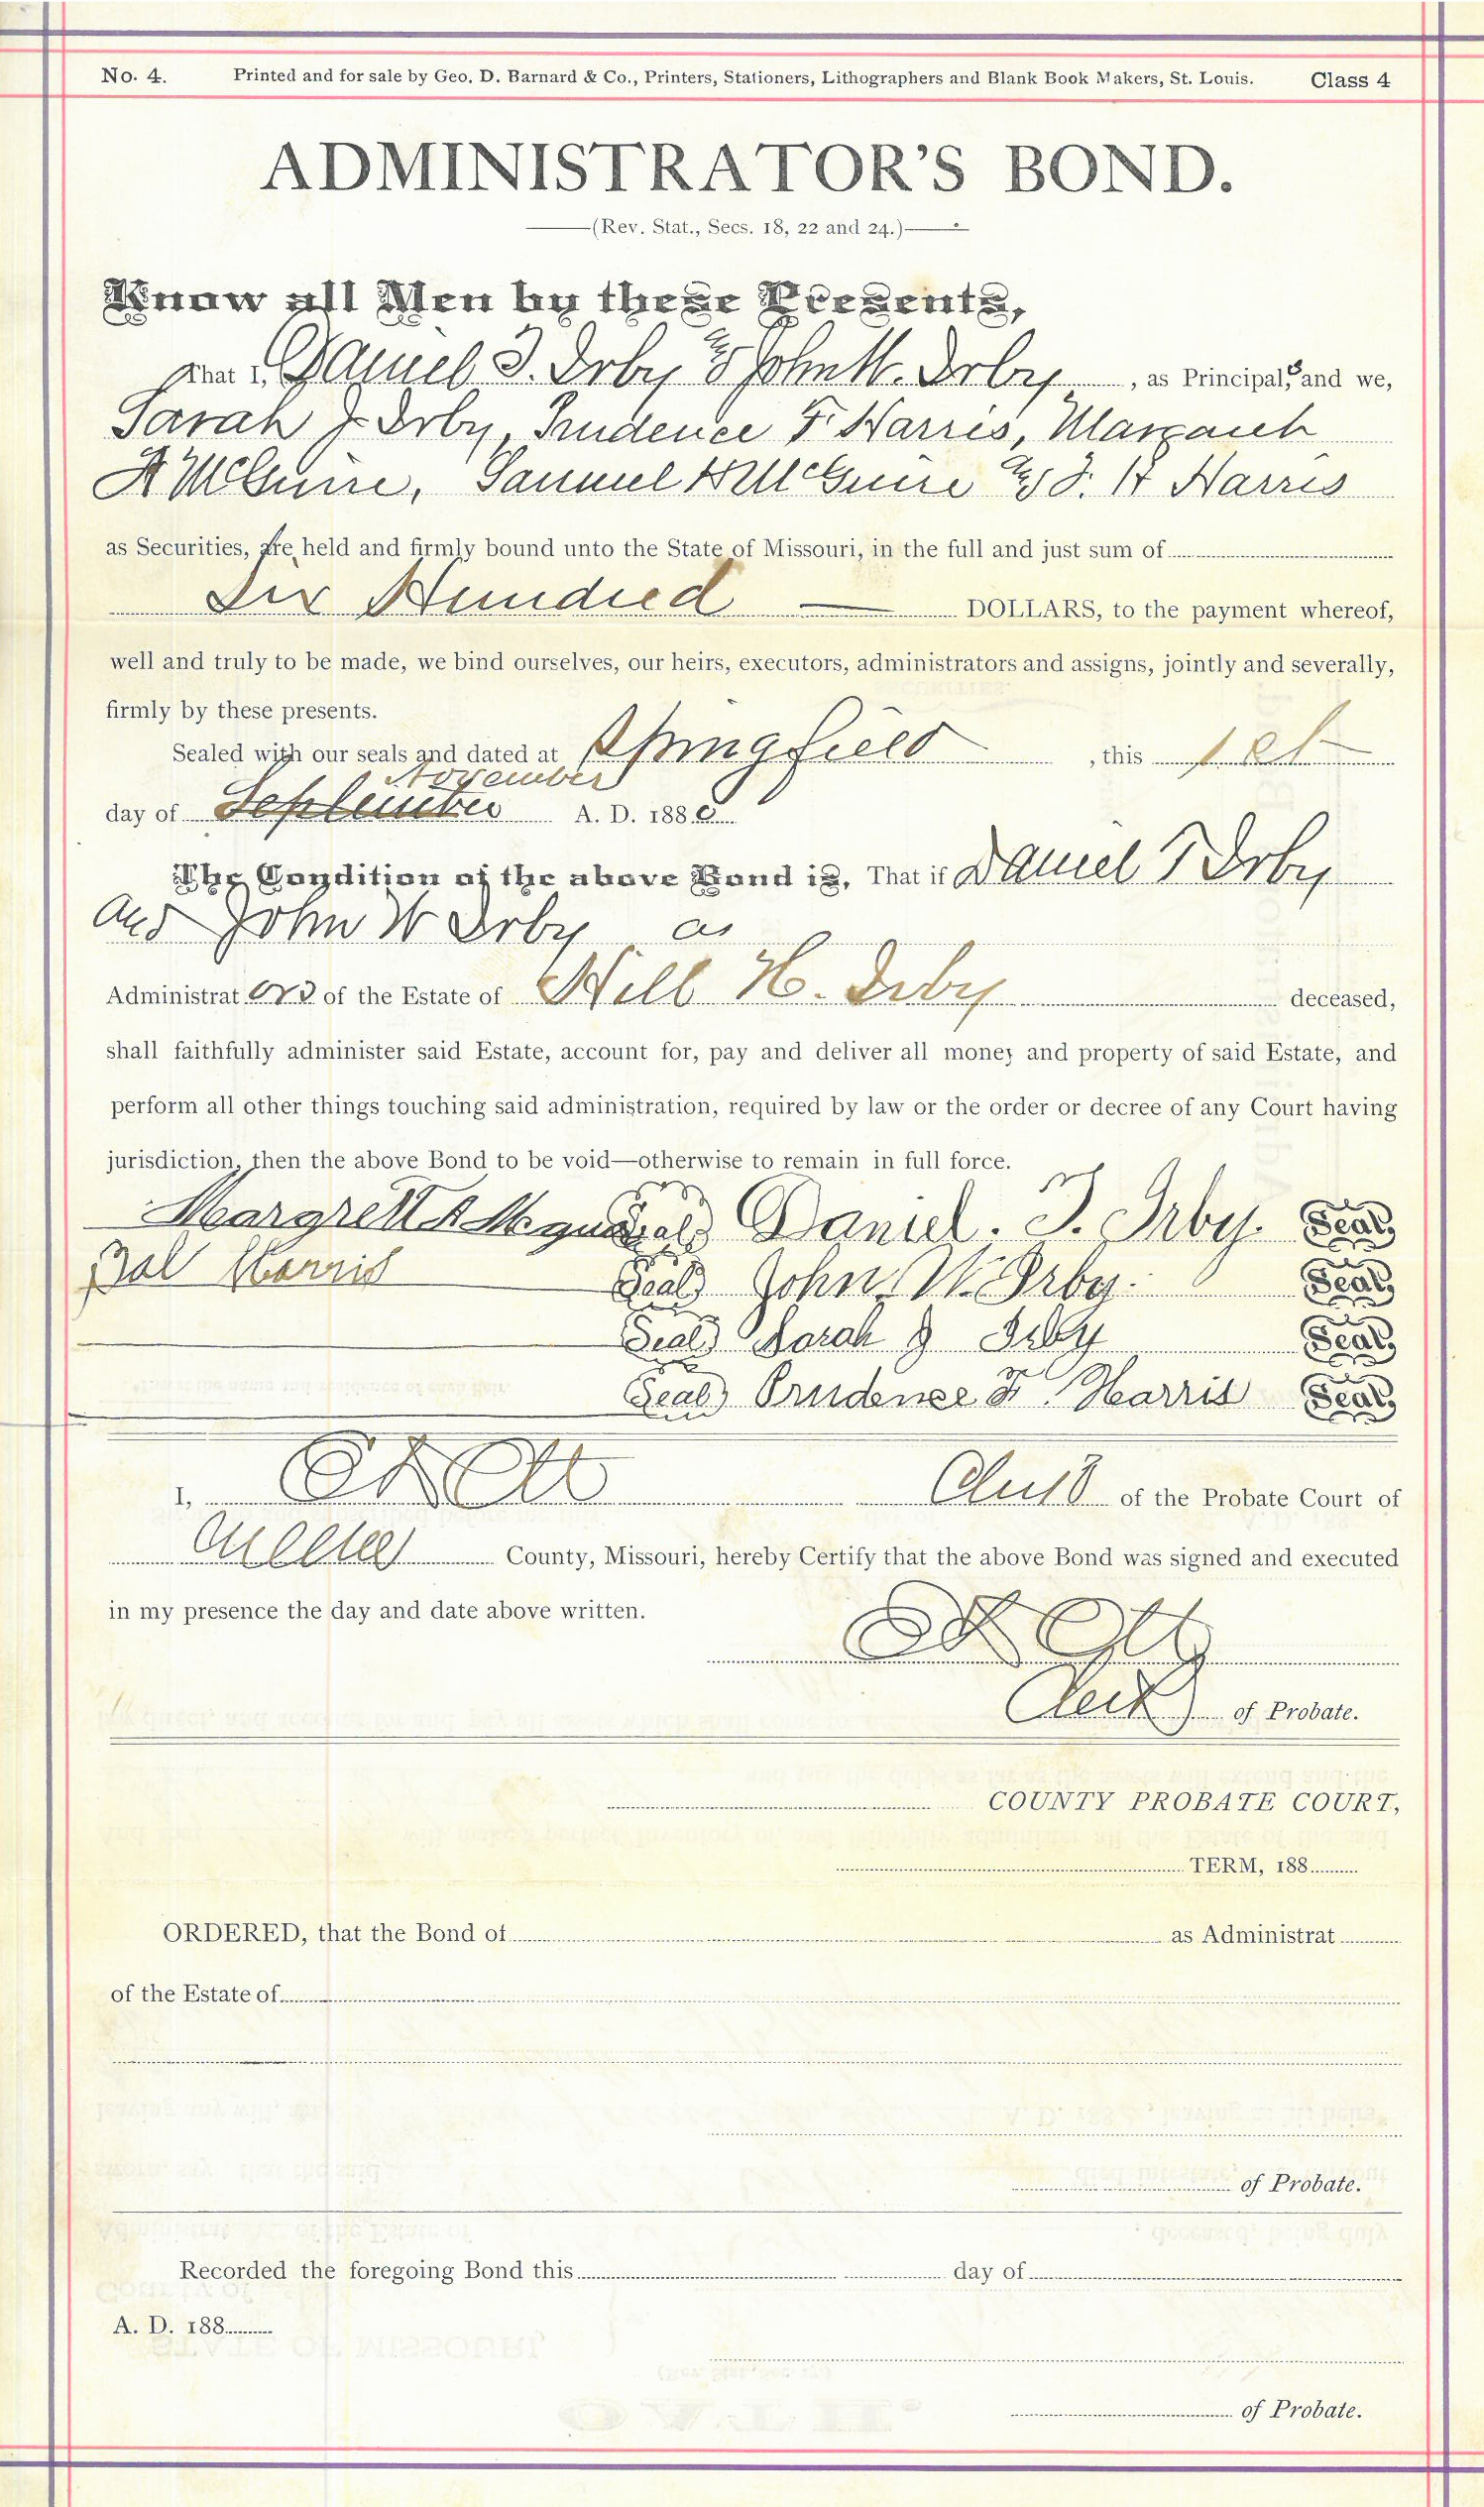 No. 4. Printed and for sale by Geo. D. Barnard & Co., Printers, Stationers, Lithographers and Blank Book Makers, St. Louis. Class 4
ADMINISTRATOR'S BOND.
(Rev. Stat., Secs. 18, 22 and 24.)
Know all Men by these Presents,
That I, Daniel T. Irby & John W. Irby, as Principal,s and we,
Sarah J Irby, Prudence F Harris, Margaret
A McGuire, Samuel H McGuire and F. H Harris
as Securities, are held and firmly bound unto the State of Missouri, in the full and just sum of
Six Hundred DOLLARS, to the payment whereof,
well and truly to be made, we bind ourselves, our heirs, executors, administrators and assigns, jointly and severally,
firmly by these presents.
Sealed with our seals and dated at Springfield, this 1st
November
day of September A. D. 188
The Condition of the above Bond is, That if Daniel T Irby
and John W Irby as
Administrators of the Estate of Hill H. Irby deceased,
shall faithfully administer said Estate, account for, pay and deliver all money and property of said Estate, and
perform all other things touching said administration, required by law or the order or decree of any Court having
jurisdiction, then the above Bond to be void—otherwise to remain in full force.
Margrett A Seal Daniel. T. Irby. Seal
Harris Seal John. W. Irby. Seal
Seal Sarah J Irby Seal
Seal Prudence F. Harris Seal
I, Clerk of the Probate Court of
County, Missouri, hereby Certify that the above Bond was signed and executed
in my presence the day and date above written.
Clerk of Probate.
COUNTY PROBATE COURT,
TERM, 188
ORDERED, that the Bond of as Administrat
of the Estate of
of Probate.
Recorded the foregoing Bond this day of
A. D. 188
of Probate.